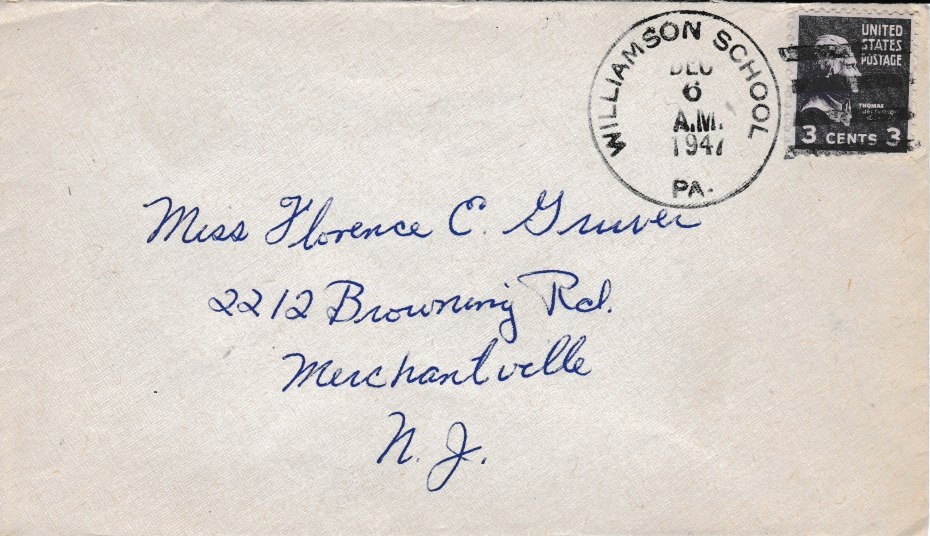 WILLIAMSON SCHOOL
DEC
6
A.M.
1947
PA.
UNITED
STATES
POSTAGE
THOMAS
3 CENTS 3
Miss Florence E. Gruver
2212 Browning Rd.
Merchantville
N. J.